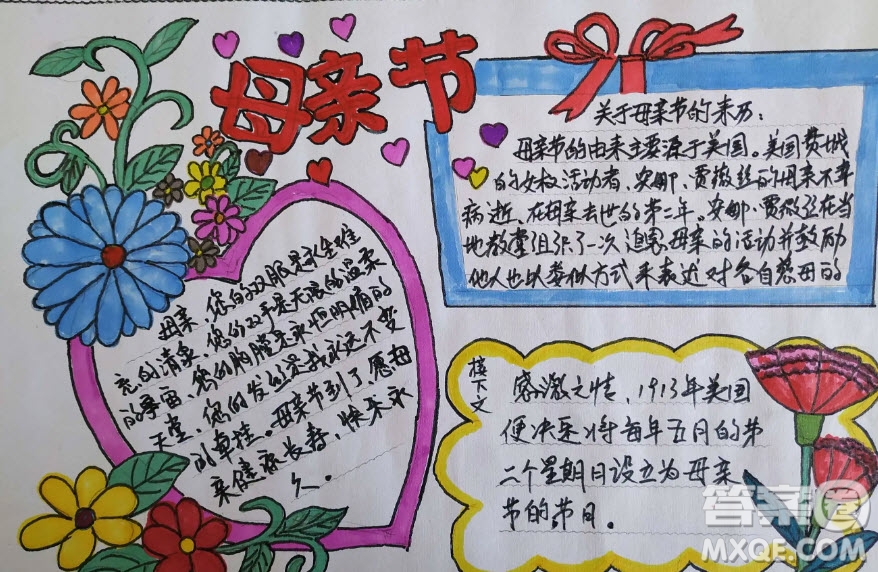 母亲节
关于母亲节的来历：
母亲节的由来主要源于美国。美国费城
的女权活动者、安娜、贾薇丝的母亲不幸
病逝、在母亲去世的第二年。安娜·贾薇丝在当
地教堂组织了一次追思母亲的活动并鼓励
他人也以类似方式来表达对各自慈母的
母亲、您的双眼是永生难
忘的清泉、您的双手是无限的温柔
的宇宙、您的胸膛是永恒明精的
天堂、您的发丝是我永远不变
的牵挂。母亲节到了、愿母
亲健康长寿、快乐永
久.
接下文
感激之情、1913年美国
便决定将每年五月的第
二个星期日设立为母亲
节的节日。
答案圈
MXQE.COM